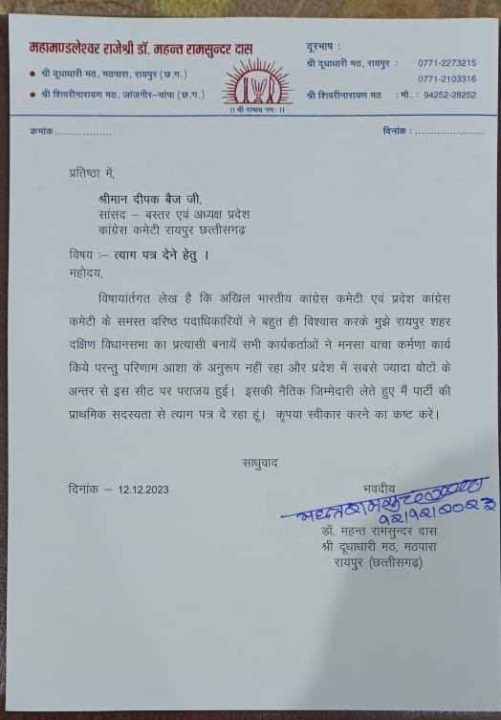 महामण्डलेश्वर राजेश्री डॉ. महन्त रामसुन्दर दास
• श्री दूधाधारी मठ, मठपारा, रायपुर (छ.ग.)
• श्री शिवरीनारायण मठ, जांजगीर–चांपा (छ.ग.)
दूरभाष :
श्री दूधाधारी मठ, रायपुर : 0771-2273215
0771-2103316
श्री शिवरीनारायण मठ : मो. : 94252-28252
क्रमांक.................
दिनांक : .....................
प्रतिष्ठा में,
श्रीमान दीपक बैज जी,
सांसद – बस्तर एवं अध्यक्ष प्रदेश
कांग्रेस कमेटी रायपुर छत्तीसगढ़
विषय :– त्याग पत्र देने हेतु ।
महोदय,
विषायांर्तगत लेख है कि अखिल भारतीय कांग्रेस कमेटी एवं प्रदेश कांग्रेस
कमेटी के समस्त वरिष्ठ पदाधिकारियों ने बहुत ही विश्वास करके मुझे रायपुर शहर
दक्षिण विधानसभा का प्रत्यासी बनायें सभी कार्यकर्ताओं ने मनसा वाचा कर्मणा कार्य
किये परन्तु परिणाम आशा के अनुरूप नहीं रहा और प्रदेश में सबसे ज्यादा वोटों के
अन्तर से इस सीट पर पराजय हुई। इसकी नैतिक जिम्मेदारी लेते हुए मैं पार्टी की
प्राथमिक सदस्यता से त्याग पत्र दे रहा हूं। कृपया स्वीकार करने का कष्ट करें।
साधुवाद
दिनांक – 12.12.2023
भवदीय
१२/१२/२०२३
डॉ. महन्त रामसुन्दर दास
श्री दूधाधारी मठ, मठपारा
रायपुर (छत्तीसगढ़)